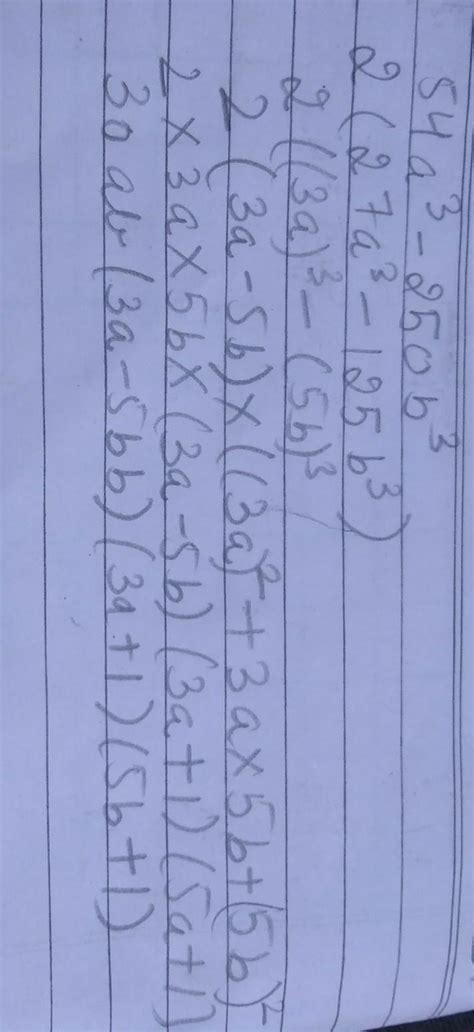 54a³-250b³
2(27a³-125b³)
2((3a)³-(5b)³
2(3a-5b)×((3a)²+3a×5b+(5b)²
2×3a×5b×(3a-5b)(3a+1)(5a+1)
30ab(3a-5bb)(3a+1)(5b+1)